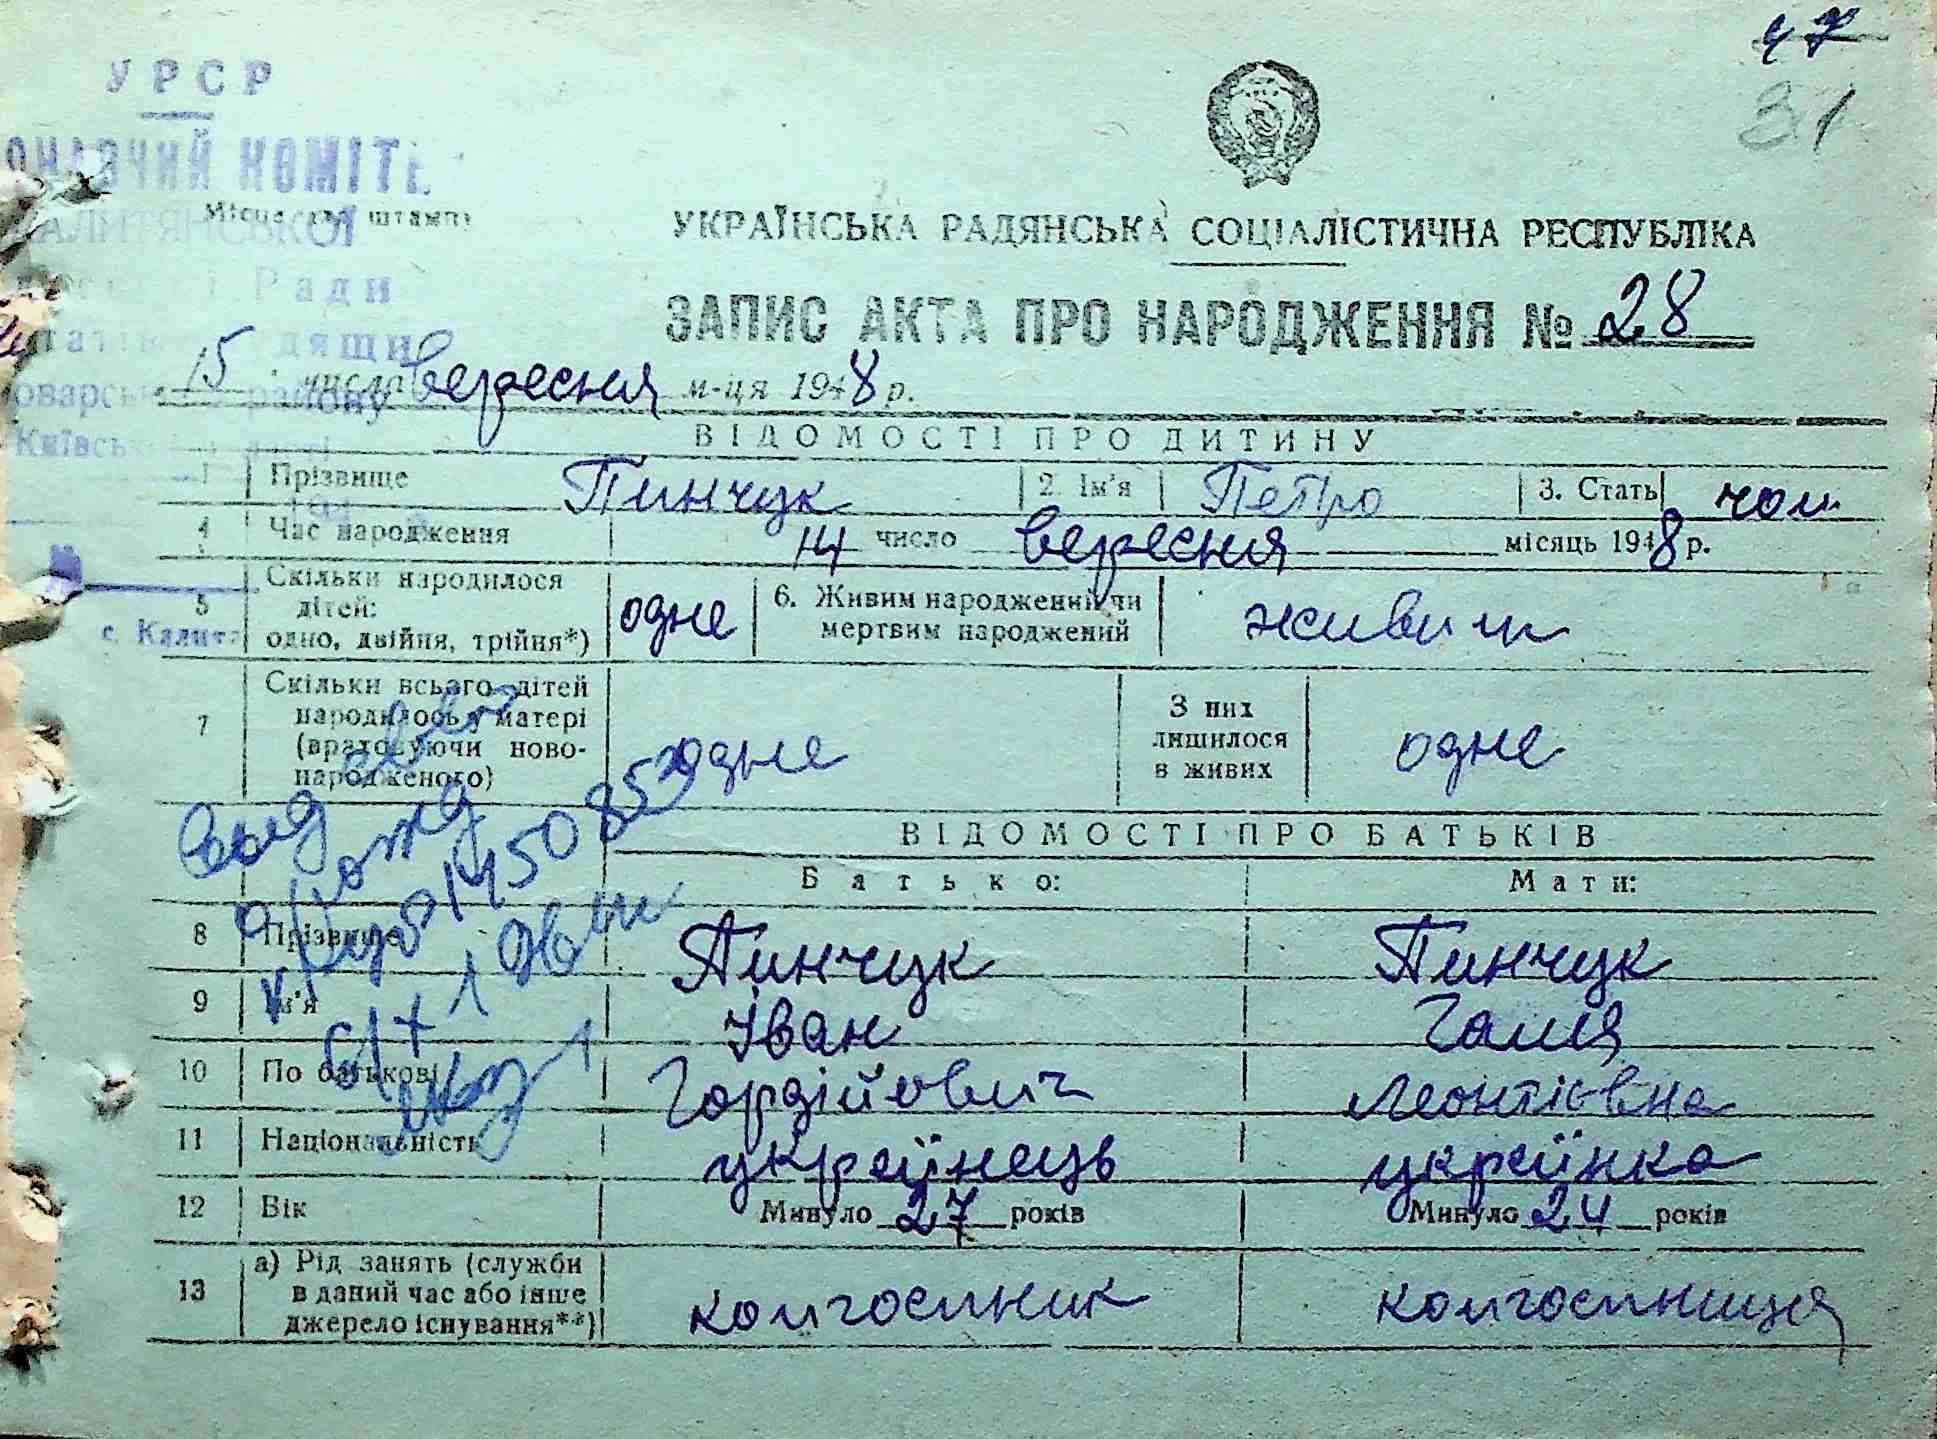 УРСР
КОМІТЕ
Місце для штампу
КАЛИТЯНСЬКОЇ
Ради
Київськ
с. Калита
47
31
УКРАЇНСЬКА РАДЯНСЬКА СОЦІАЛІСТИЧНА РЕСПУБЛІКА
ЗАПИС АКТА ПРО НАРОДЖЕННЯ № 28
15 числа вересня м-ця 1948 р.
ВІДОМОСТІ ПРО ДИТИНУ
1 Прізвище Пинчук 2. Ім'я Петро 3. Стать чол.
4 Час народження 14 число вересня місяць 1948 р.
5 Скільки народилося дітей: одно, двійня, трійня*) одне 6. Живим народжений чи мертвим народжений живим
7 Скільки всього дітей народилось у матері (враховуючи ново-народженого) одне З них лишилося в живих одне
ВІДОМОСТІ ПРО БАТЬКІВ
Батько: Мати:
8 Прізвище Пинчук Пинчук
9 Ім'я Іван Галя
10 По батькові Гордійович Леонтіївна
11 Національність українець українка
12 Вік Минуло 27 років Минуло 24 років
13 а) Рід занять (служби в даний час або інше джерело існування**) колгоспник колгоспниця